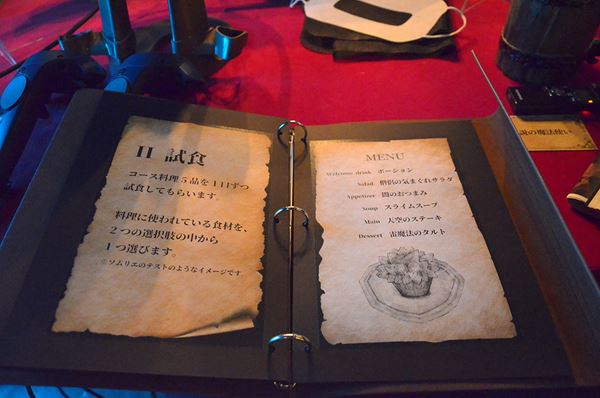 II 試食
コース料理5品を1口ずつ
試食してもらいます。
料理に使われている食材を、
2つの選択肢の中から
1つ選びます。
※ソムリエのテストのようなイメージです。
MENU
Welcome drink ポーション
Salad 僧侶の気まぐれサラダ
Appetizer 闇のおつまみ
Soup スライムスープ
Main 天空のステーキ
Dessert 雷魔法のタルト
説の魔法使い